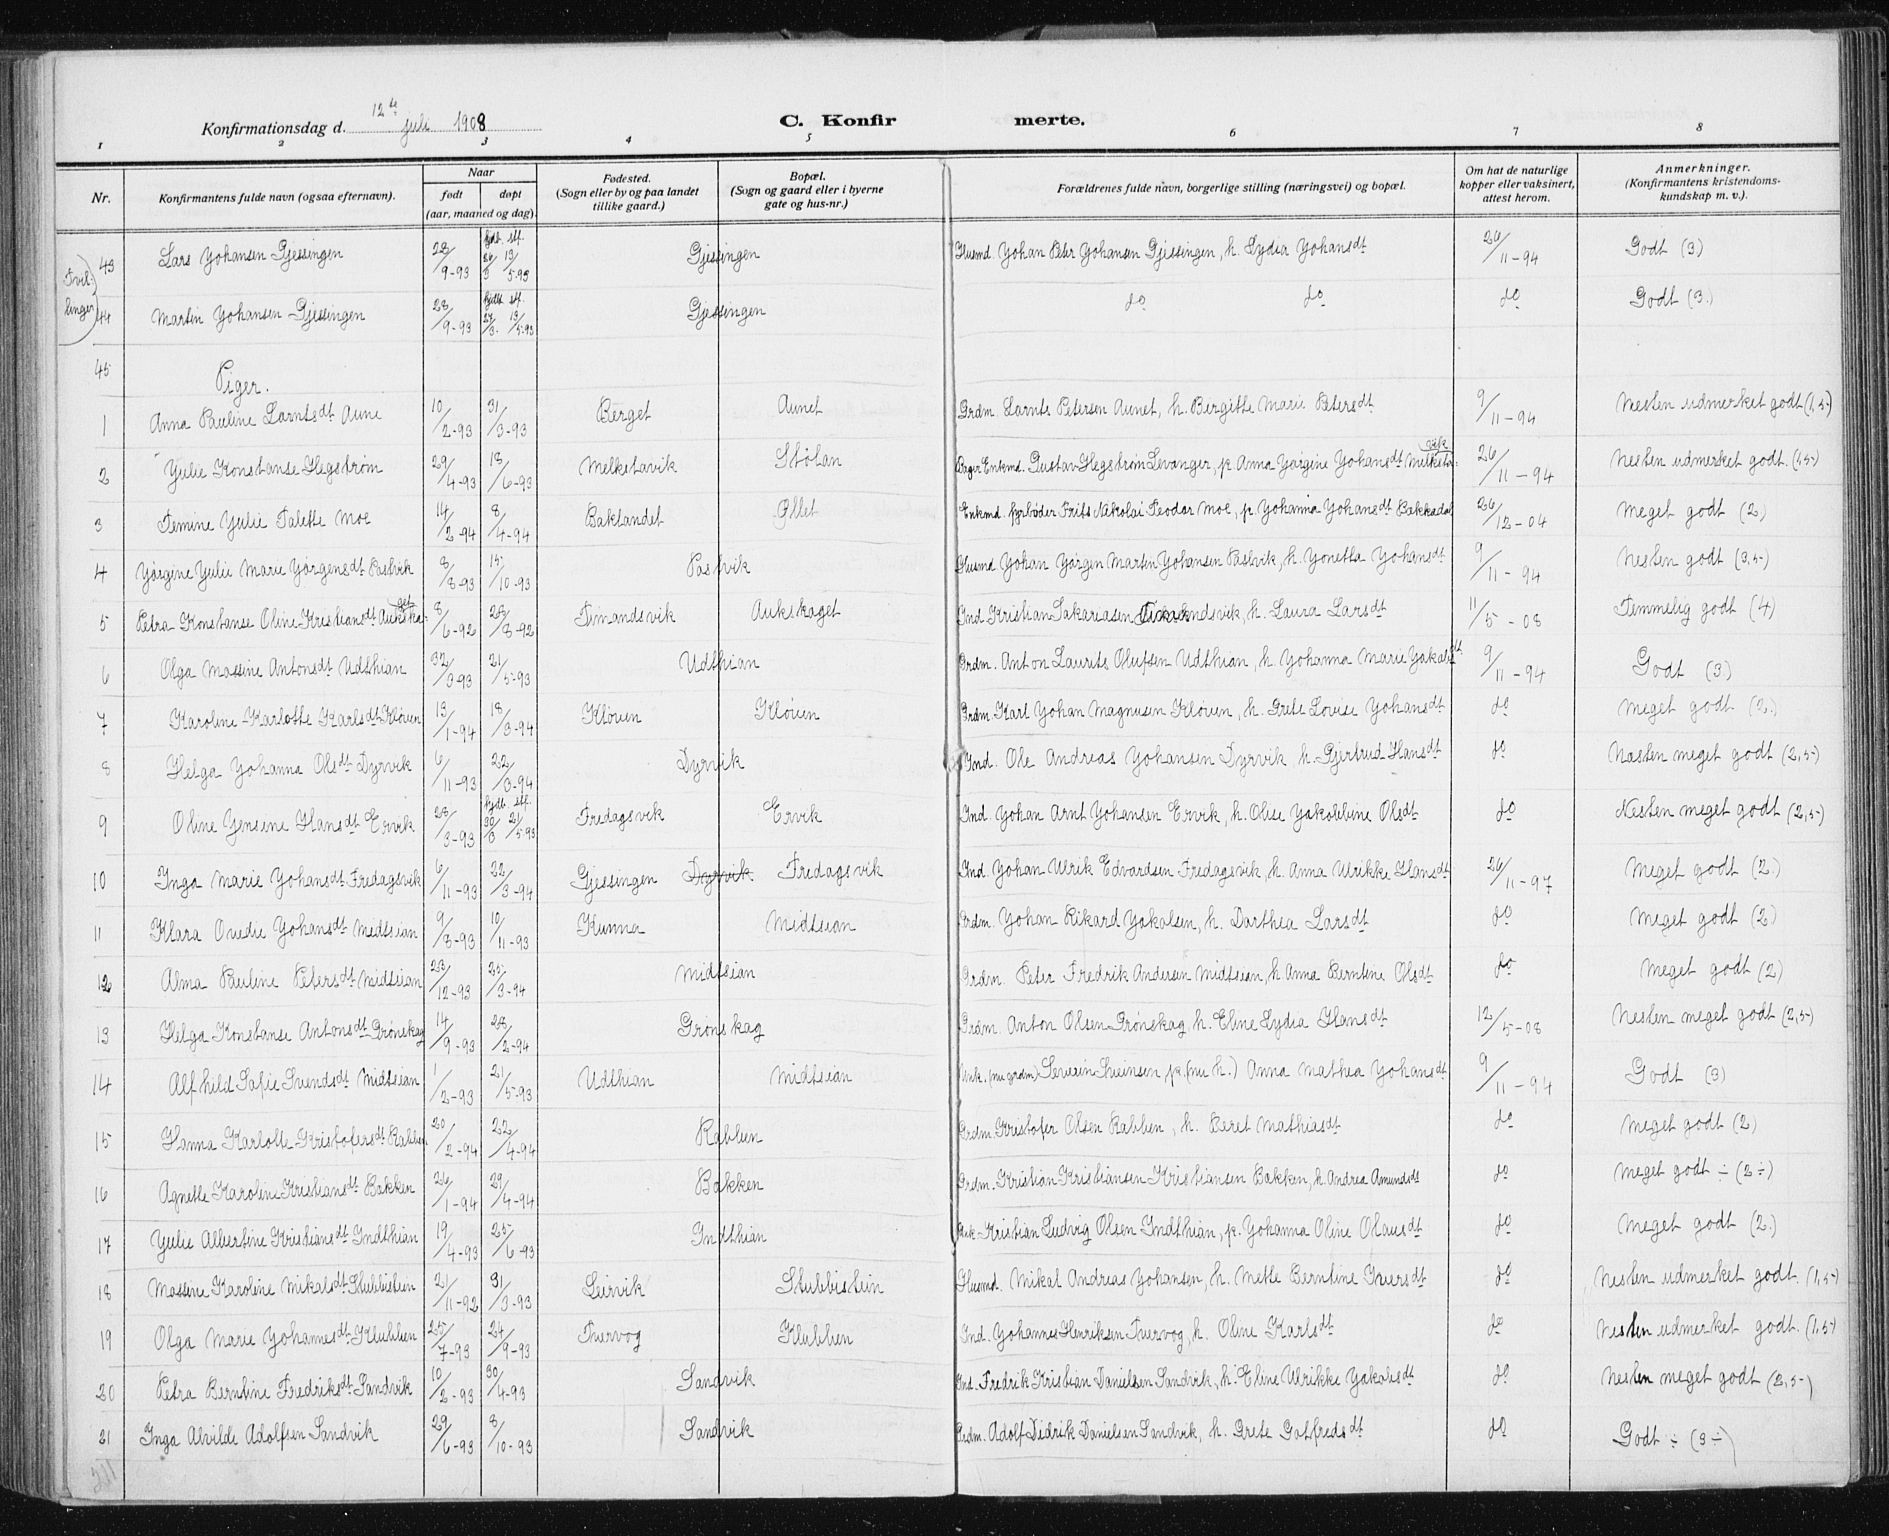 Konfirmationsdag d. 12te juli 1908 C. Konfirmerte.
1 2 3 4 5 6 7 8
Nr. Konfirmantens fulde navn (ogsaa efternavn). Naar født døpt (aar, maaned og dag) Fødested. (Sogn eller by og paa landet tillike gaard.) Bopæl. (Sogn og gaard eller i byerne gate og hus-nr.) Forældrenes fulde navn, borgerlige stilling (næringsvei) og bopæl. Om hat de naturlige kopper eller vaksinert, attest herom. Anmerkninger. (Konfirmantens kristendomskundskap m. v.).
Tvillinger
43 Lars Yohansen Gjessingen 28/9-93 hjdb. stf. 13/5-93 Gjessingen Husmd. Yohan Peter Yohansen Gjessingen, h. Lydia Yohansdt 26/11-94 Godt (3)
44 Martin Yohansen Gjessingen 28/9-93 hjdb. stf. 13/5-93 Gjessingen do do do Godt (3.)
45
Piger.
1 Anna Pauline Larntsdt Aune 10/2-93 31/3-93 Berget Aunet Grdm. Larnts Petersen Aunet, h. Bergitte Marie Petersdt 9/11-94 Nesten udmerket godt (1,5-)
2 Yulie Konstanse Hegstrøm 29/4-93 18/6-93 Melkstavik Stølan Bager Enkmd. Gustav Hegstrøm Levanger, p. Anna Yørgine Yohansdt Melkstavik 26/11-94 Nesten udmerket godt. (1,5-)
3 Femine Yulie Talette Moe 14/2-94 8/4-94 Baklandet Øllet Enkmd. Frits Nikolai Teodor Moe, p. Yohanna Yohansdt Bakkadal 26/12-04 Meget godt (2)
4 Yørgine Yulie Marie Yørgensdt Pastvik 8/8-93 15/10-93 Pastvik Husmd Yohan Yørgen Martin Yohansen Pastvik, h. Yonetta Yohansdt 9/11-94 Nesten godt (3,5-)
5 Petra Konstanse Oline Kristiansdt Aukskaget 8/6-92 28/8-92 Timandsvik Aukskaget Ind Kristian Sakariasen Timandsvik, h. Laura Larsdt 11/5-08 Temmelig godt (4)
6 Olga Massine Antonsdt Udthian 32/3-93 21/5-93 Udthian Grdm. Anton Laurits Olufsen Udthian, h. Yohanna Marie Yakobsdt 9/11-94 Godt (3)
7 Karoline Karlotte Karlsdt Kløven 13/1-94 18/3-94 Kløven Kløven Grdm. Karl Yohan Magnusen Kløven, h. Grete Lovise Yohansdt do Meget godt (2.)
8 Helga Yohanna Olsdt Dyrvik 6/11-93 22/3-94 Dyrvik Ind. Ole Andreas Yohansen Dyrvik h. Gjertrud Hansdt do Nasten meget godt (2,5-)
9 Oline Yensine Hansdt Ervik 28/3-93 hjdb. stf. 30/3 21/5-93 Fredagsvik Ervik Ind. Yohan Arnt Yohansen Ervik, h. Olise Yakobbine Olsdt do Nesten meget godt (2,5-)
10 Inga Marie Yohansdt Fredagsvik 6/11-93 22/3-94 Gjessingen Dyrvik Fredagsvik Ind. Yohan Ulrik Edvardsen Fredagsvik, h. Anna Ulrikke Hansdt 26/11-97 Meget godt (2.)
11 Klara Ovedie Yohansdt Medtsian 9/8-93 10/11-93 Kunna Midtsian Grdm. Yohan Rikard Yakobsen, h. Dorthea Larsdt do Meget godt (2)
12 Alma Pauline Petersdt Midtsian 23/12-93 25/3-94 Midtsian Grdm. Peter Fredrik Andersen Midtsian, h Anna Berntine Olsdt do Meget godt (2)
13 Helga Konstanse Antonsdt Grønskag 14/9-93 28/2-94 Grønskag Grdm. Anton Olsen Grønskag h. Eline Lydia Hansdt 12/5-08 Nesten meget godt (2,5-)
14 Alfhild Sofie Svendsdt Midtsian 1/2-93 21/5-93 Udthian Midtsian Unk. (nu grdm) Severin Sveinsen p. (nu h.) Anna Mathea Yohansdt 9/11-94 Godt (3)
15 Hanna Karlotte Kristofersdt Rabben 20/2-94 22/4-94 Rabben Grdm. Kristofer Olsen Rabben, h. Beret Mathiasdt do Meget godt (2)
16 Agnette Karoline Kristiansdt Bakken 26/1-94 29/4-94 Bakken Grdm. Kristian Kristiansen Kristiansen Bakken, h. Andrea Amundsdt do Meget godt ÷ (2÷)
17 Yulie Albertine Kristiansdt Indthian 19/4-93 25/6-93 Indthian Unk. Kristian Ludvig Olsen Indthian, p. Yohanna Oline Olausdt do Meget godt (2.)
18 Massine Karoline Mikalsdt Stubbistein 21/11-92 31/3-93 Leirvik Stubbistein Husmd. Mikal Andreas Yohansen, h. Mette Berntine Iversdt do Nesten udmerket godt. (1,5-)
19 Olga Marie Yohannesdt Klubben 25/7-93 24/9-93 Tvervog Klubben Ind. Yohannes Henriksen Tvervog, h. Oline Karlsdt do Nesten udmerket godt. (1,5-)
20 Petra Berntine Fredriksdt Sandvik 10/2-93 30/4-93 Sandvik Ind. Fredrik Kristian Danielsen Sandvik, h. Eline Ulrikke Yakobsdt do Nesten meget godt (2,5-)
21 Inga Alvilde Adolfsen Sandvik 29/6-93 8/10-93 Sandvik Grdm. Adolf Didrik Danielsen Sandvik, h. Grete Gotfredsdt do Godt ÷ (3÷)